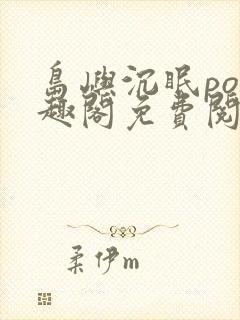 島嶼沉眠po
趣閣免費閱
柔伊m